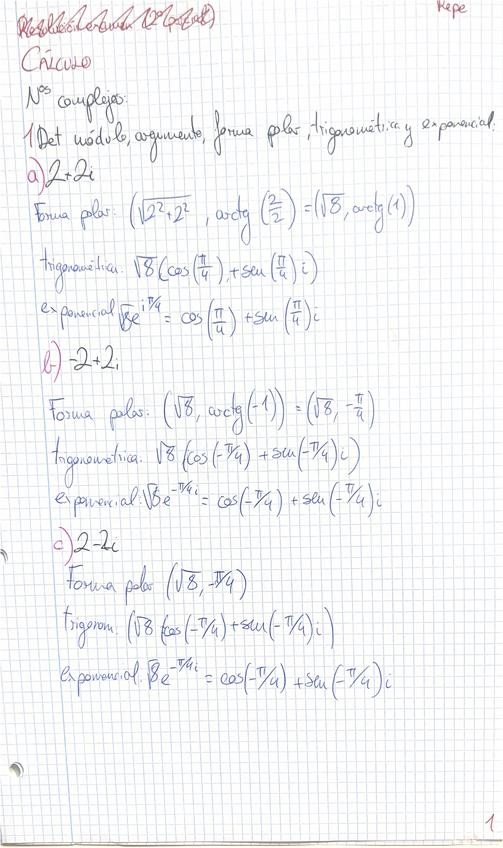 Repe
CÁLCULO
Nos complejos:
1) Det módulo, argumento, forma polar, trigonométrica y exponencial.
a) 2+2i
Forma polar: (√2²+2², arctg(2/2) = (√8, arctg(1))
trigonométrica: √8 (cos(π/4) + sen(π/4) i)
exponencial √8e^iπ/4 = cos(π/4) + sen(π/4) i
b) -2+2i
Forma polar: (√8, arctg(-1)) = (√8, -π/4)
trigonométrica: √8 (cos(-π/4) + sen(-π/4) i)
exponencial: √8e^-π/4 i = cos(-π/4) + sen(-π/4) i
c) 2-2i
Forma polar (√8, -π/4)
trigonom: (√8 (cos(-π/4) + sen(-π/4) i)
exponencial: √8e^-π/4 i = cos(-π/4) + sen(-π/4) i
1